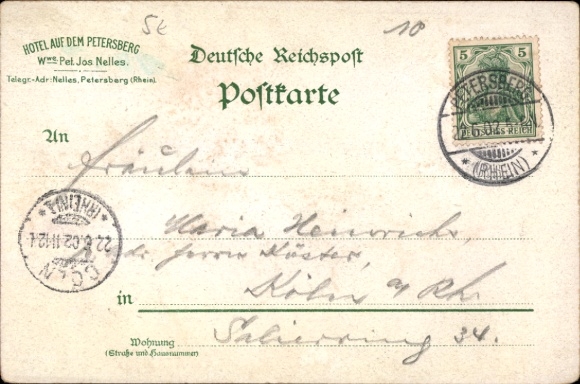 5k
10
HOTEL AUF DEM PETERSBERG
Wwe Pet. Jos Nelles.
Telegr.-Adr: Nelles, Petersberg (Rhein).
Deutsche Reichspost
Postkarte
5 5
DEUTSCHES REICH
PETERSBERG
(RHEIN)
An
Fräulein
Maria Heinrichs,
Adr. Herrn Küster,
in Köln a/ Rh.
Salierring 34.
Wohnung
(Straße und Hausnummer)
CÖLN
22.6.02.11-12
(RHEIN) 1